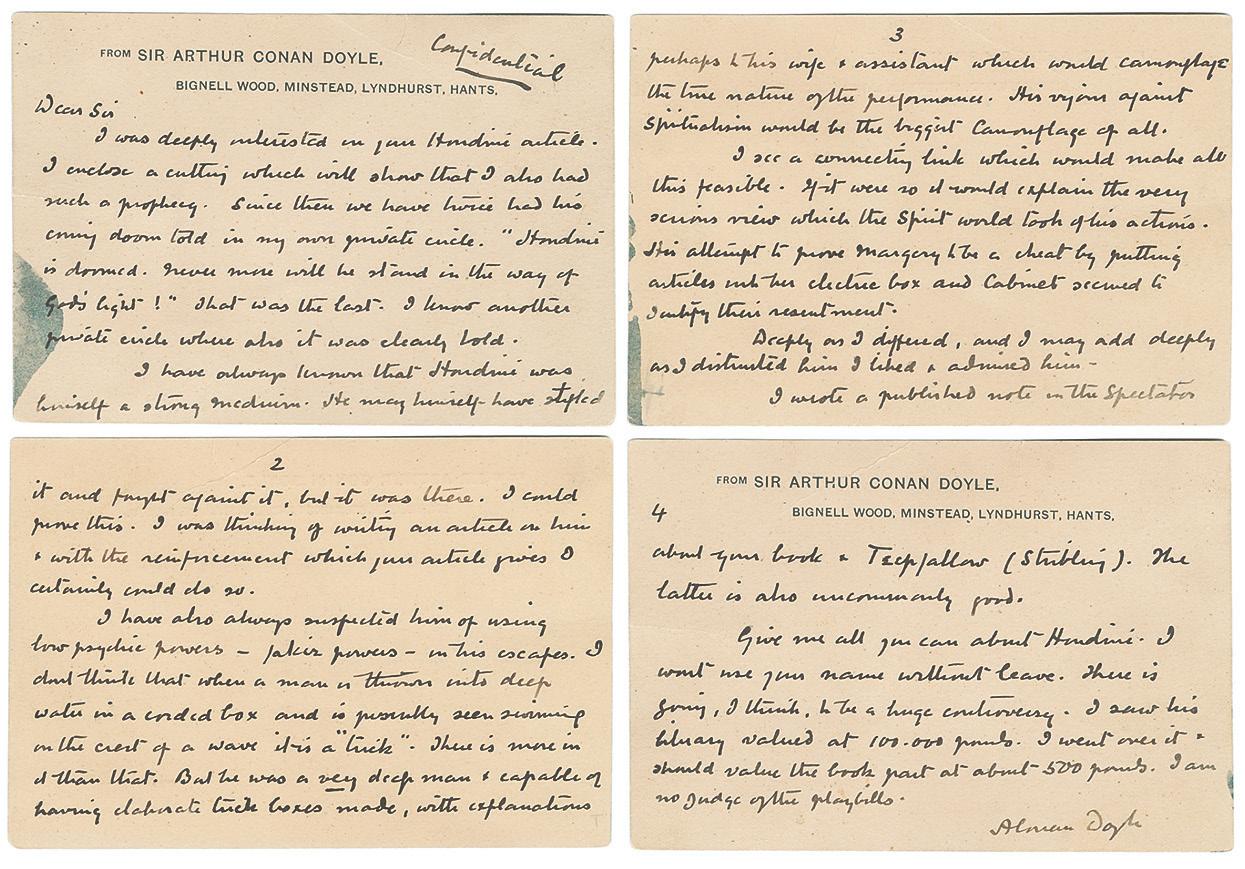 Confidential
FROM SIR ARTHUR CONAN DOYLE,
BIGNELL WOOD, MINSTEAD, LYNDHURST, HANTS.
Dear Sir
I was deeply interested in your Houdini article.
I enclose a cutting which will show that I also had
such a prophecy. Since then we have twice had his
coming doom told in my own private circle. "Houdini
is doomed. Never more will he stand in the way of
God's light!" That was the last. I know another
private circle where also it was clearly told.
I have always known that Houdini was
himself a strong medium. He may himself have stifled
2
it and fought against it, but it was there. I could
prove this. I was thinking of writing an article on him
& with the reinforcement which your article gives I
certainly could do so.
I have also always suspected him of using
low psychic powers – fakir powers – in his escapes. I
dont think that when a man is thrown into deep
water in a corded box and is presently seen swimming
on the crest of a wave it is a "trick". There is more in
it than that. But he was a very deep man & capable of
having elaborate trick boxes made, with explanations
3
perhaps to his wife & assistant which would camouflage
the true nature of the performance. His vigour against
Spiritualism would be the biggest Camouflage of all.
I see a connecting link which would make all
this feasible. If it were so it would explain the very
serious view which the Spirit world took of his actions.
His attempt to prove Margery to be a cheat by putting
articles into her electric box and Cabinet seemed to
justify their resentment.
Deeply as I differed, and I may add deeply
as I distrusted him I liked & admired him –
I wrote a published note in the Spectator
FROM SIR ARTHUR CONAN DOYLE,
4
BIGNELL WOOD, MINSTEAD, LYNDHURST, HANTS.
about your book & Teepfallow (Stribling). The
latter is also uncommonly good.
Give me all you can about Houdini. I
wont use your name without leave. There is
going, I think, to be a huge controversy. I saw his
library valued at 100.000 pounds. I went over it &
should value the book part at about 500 pounds. I am
no judge of the playbills.
A Conan Doyle